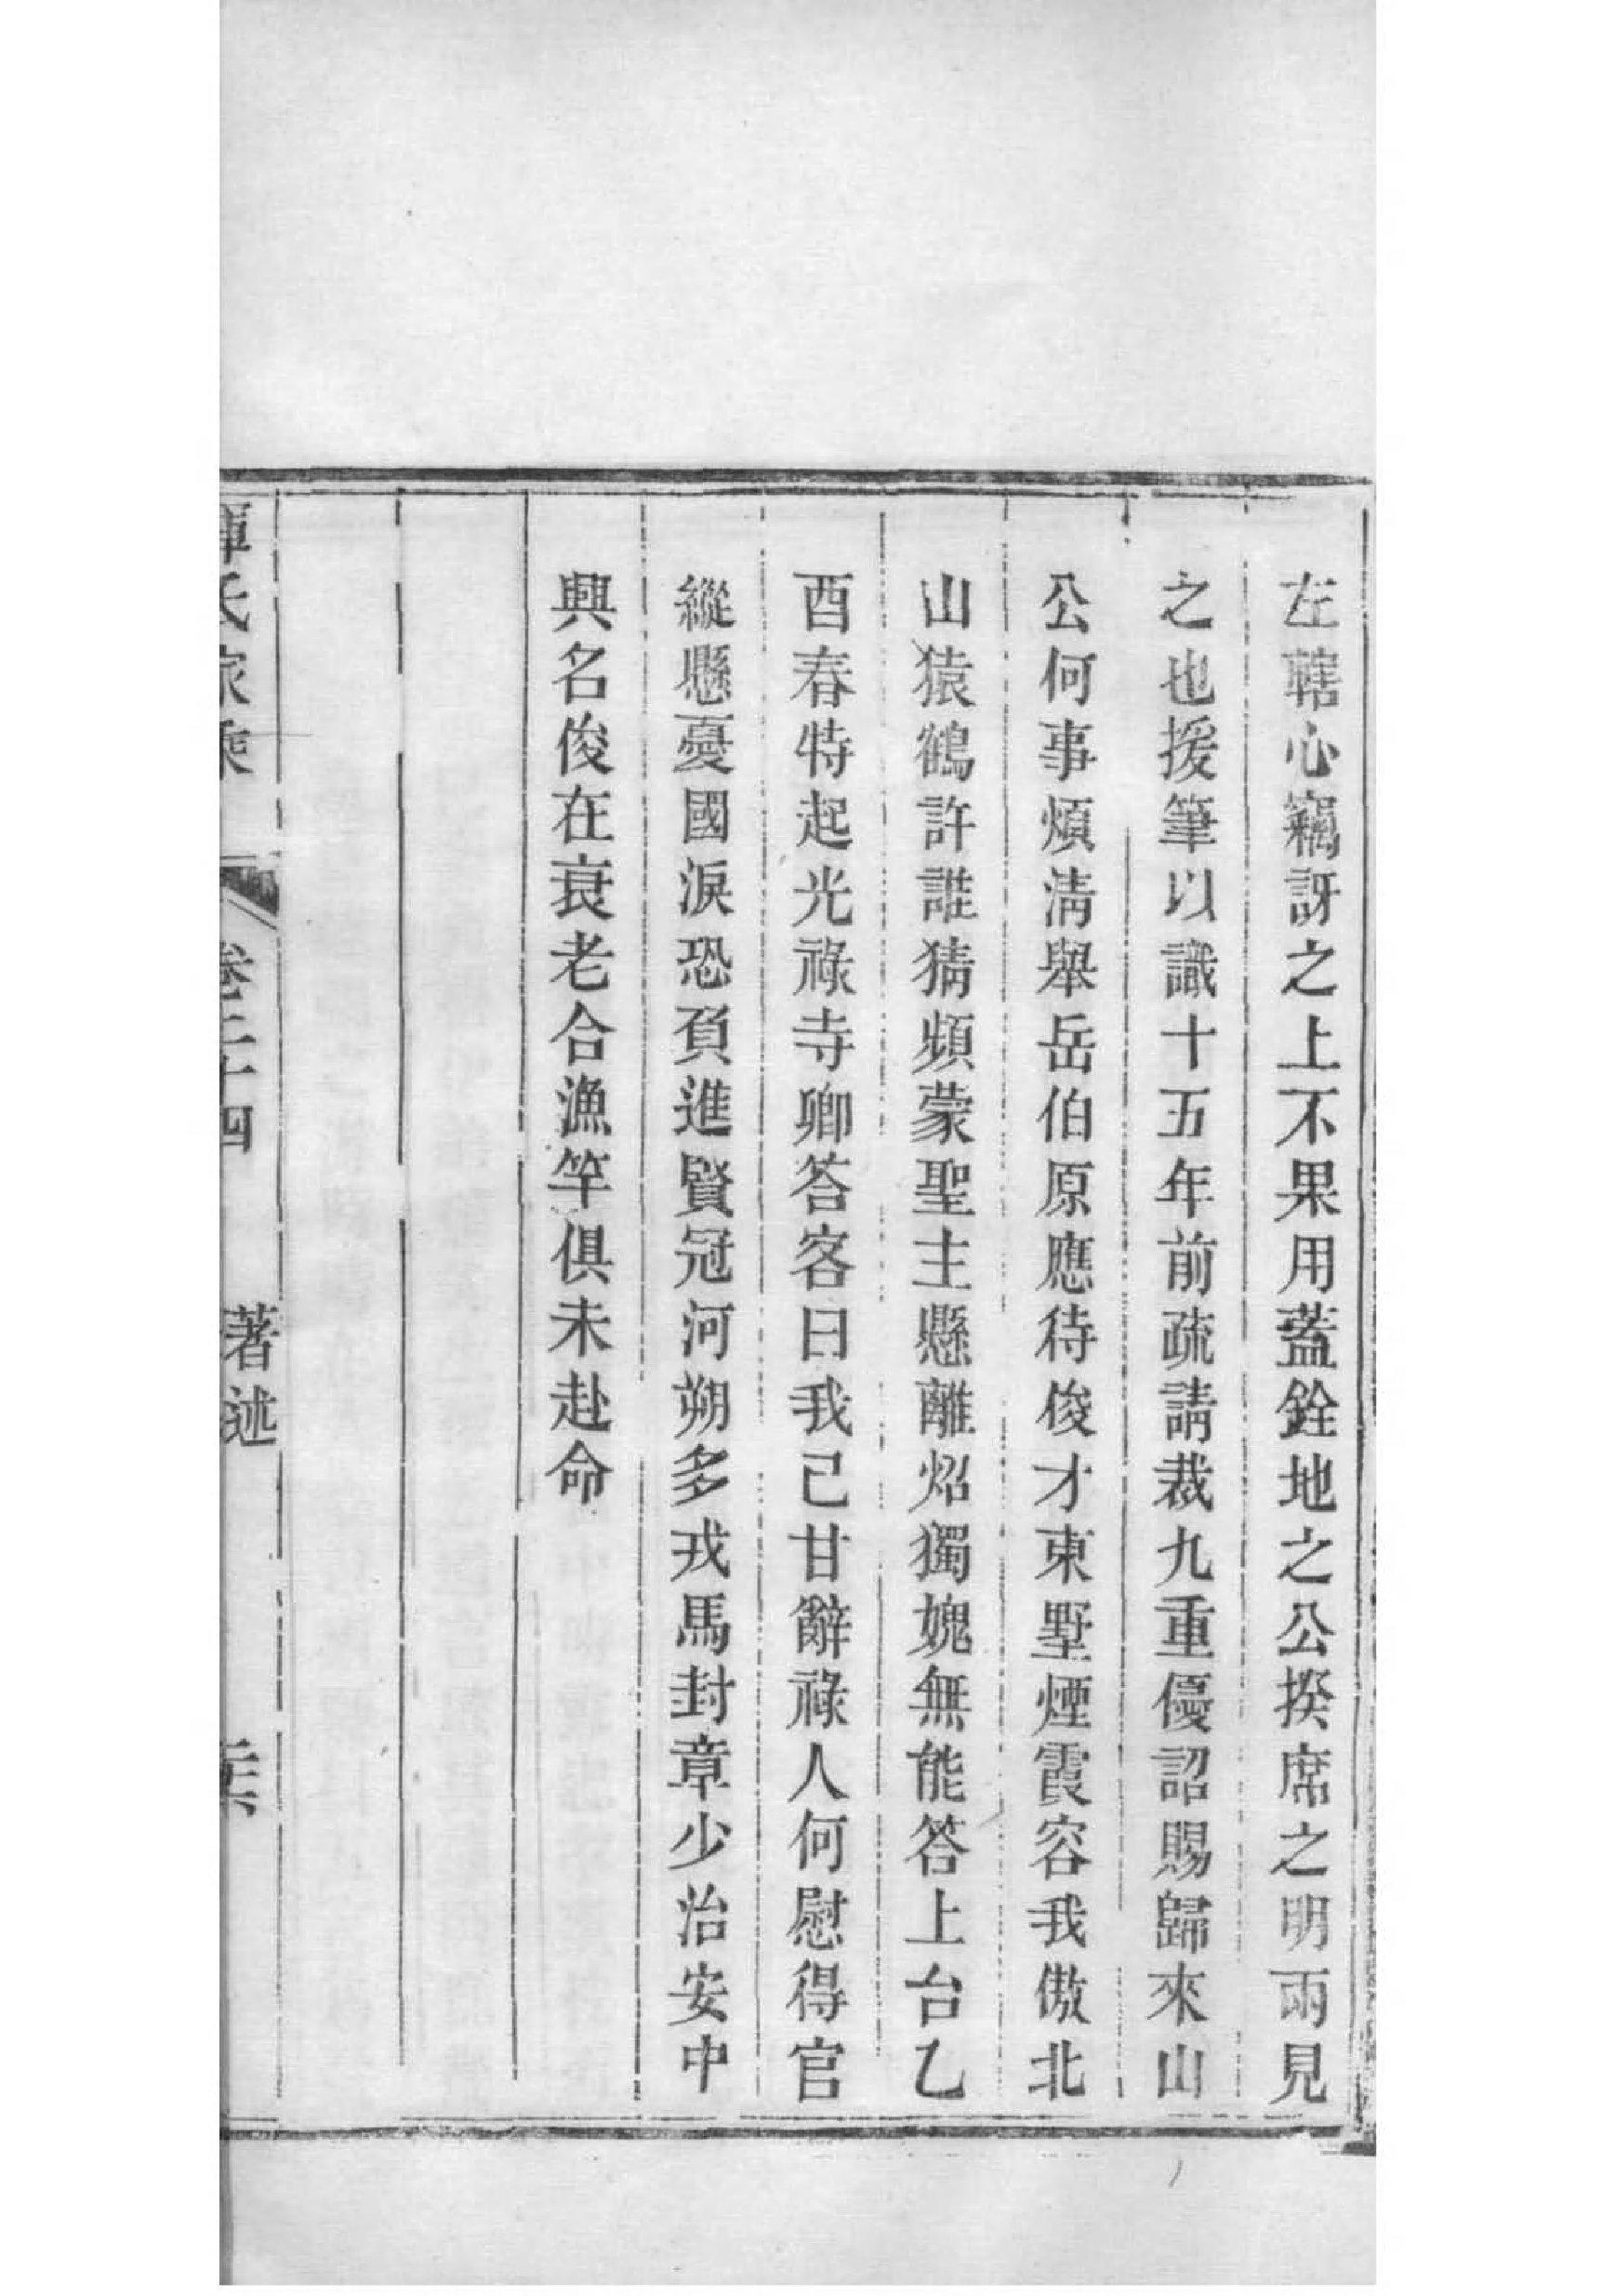 左轄心竊訝之上不果用蓋銓地之公揆席之明兩見
之也援筆以識十五年前疏請裁九重優詔賜歸來山
公何事煩清舉岳伯原應待俊才東墅煙霞容我傲北
山猿鶴許誰猜頻蒙聖主懸離炤獨媿無能答上台乙
酉春特起光祿寺卿答客曰我己甘辭祿人何慰得官
縱懸憂國淚恐負進賢冠河朔多戎馬封章少治安中
興名俊在衰老合漁竿俱未赴命
氏家乘
卷二十四
著述